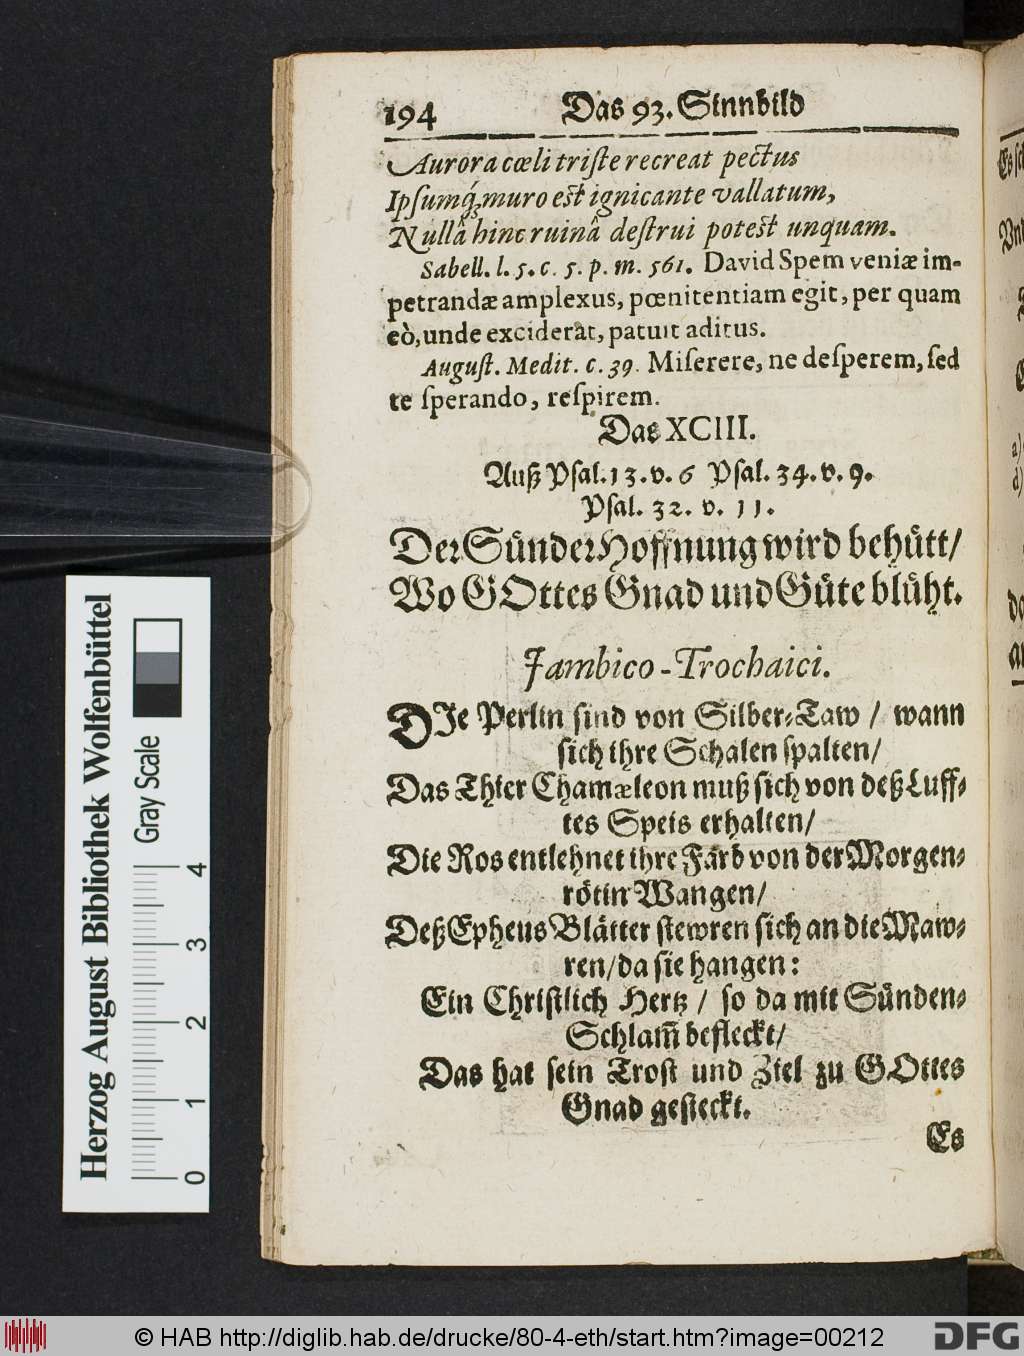 194 Das 93. Sinnbild
Aurora cœli triſte recreat pectus
Ipſumq́; muro est ignicante vallatum,
Nullâ hinc ruinâ deſtrui potest unquam.
Sabell. l. 5. c. 5. p. m. 561. David Spem veniæ im-
petrandæ amplexus, pœnitentiam egit, per quam
eò, unde exciderat, patuit aditus.
Auguſt. Medit. c. 39. Miſerere, ne deſperem, ſed
te ſperando, reſpirem.
Das XCIII.
Auß Pſal. 13. v. 6 Pſal. 34. v. 9.
Pſal. 32. v. 11.
Der Sünder Hoffnung wird behütt/
Wo GOttes Gnad und Güte blüht.
Jambico-Trochaici.
DIe Perlin ſind von Silber-Taw / wann
ſich ihre Schalen ſpalten/
Das Thier Chamæleon muß ſich von deß Luff-
tes Speis erhalten/
Die Ros entlehnet ihre Farb von der Morgen-
rötin Wangen/
Deß Epheus Blätter ſtewren ſich an die Maw-
ren/ da ſie hangen:
Ein Chriſtlich Hertz / ſo da mit Sünden-
Schlam̃ befleckt/
Das hat ſein Troſt und Ziel zu GOttes
Gnad geſteckt.
Es
Herzog August Bibliothek Wolfenbüttel
Gray Scale
0 1 2 3 4
© HAB http://diglib.hab.de/drucke/80-4-eth/start.htm?image=00212
DFG